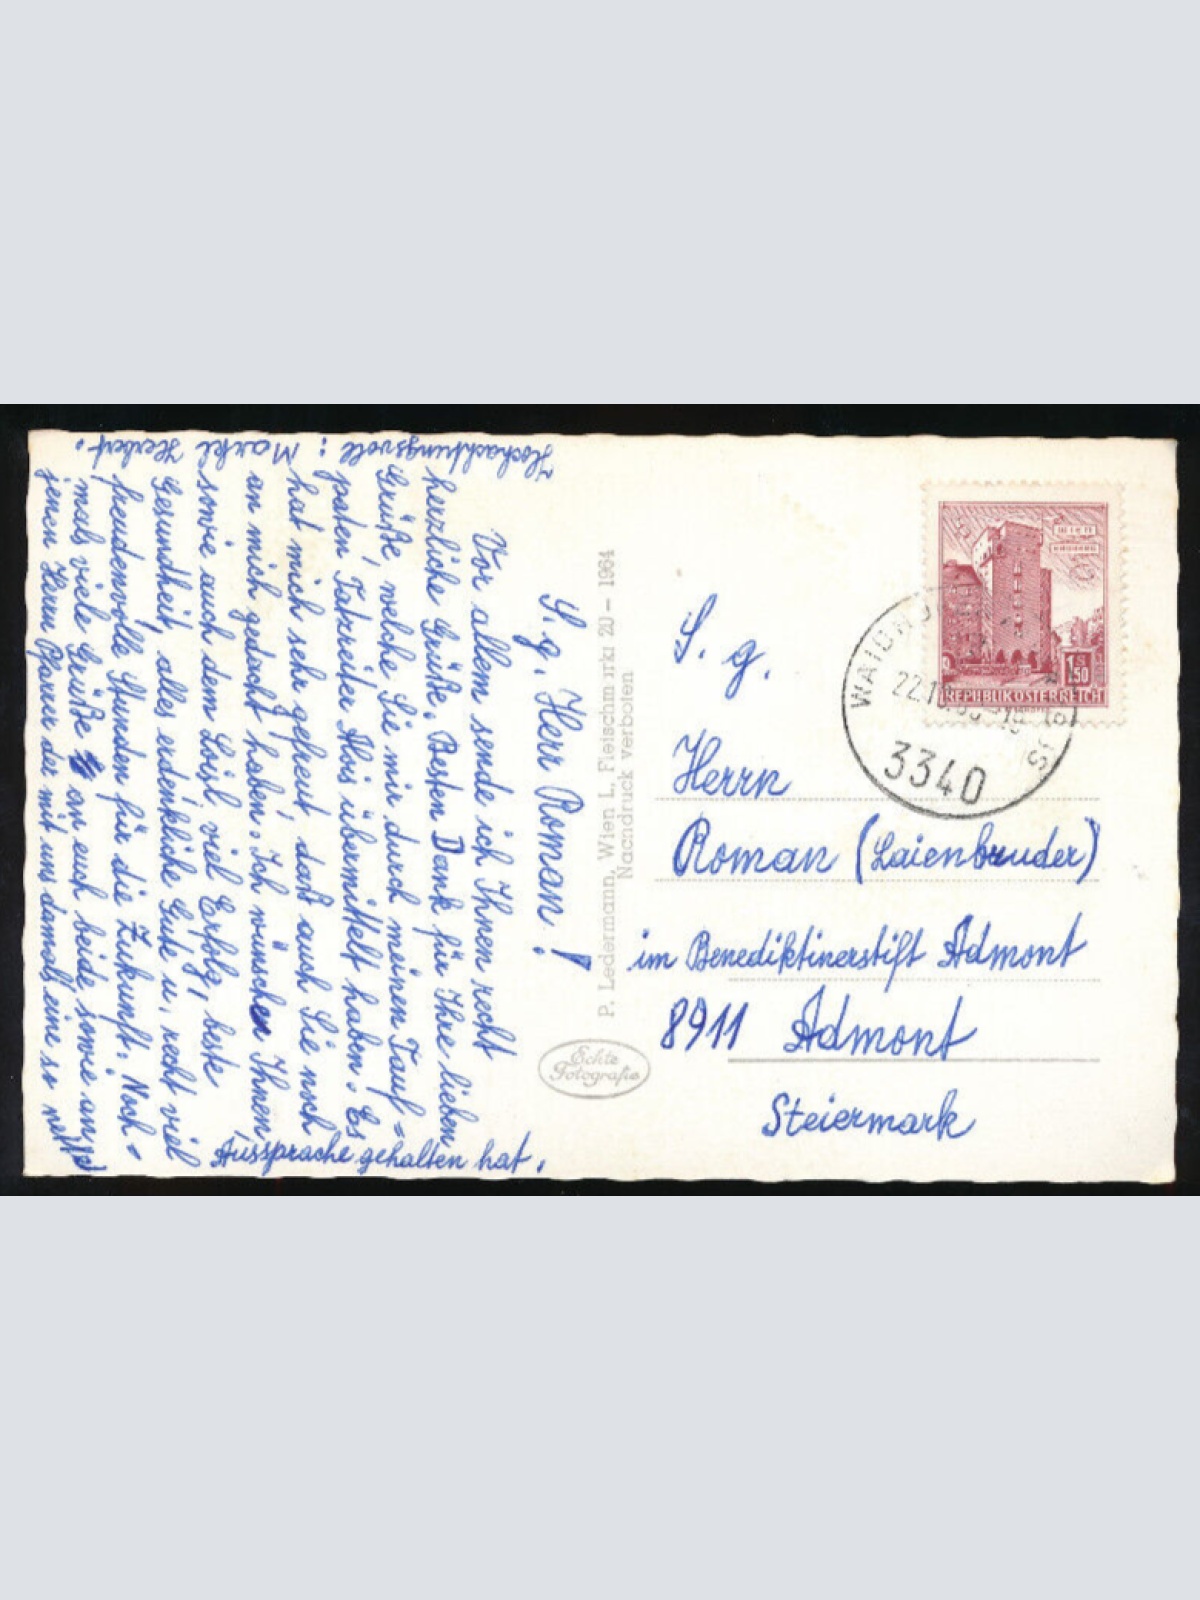 S. g. Herr Roman!
Vor allem sende ich Ihnen recht
herzliche Grüße. Besten Dank für Ihre lieben
Grüße, welche Sie mir durch meinen Tauf=
paten, Tatzreiter Alois übermittelt haben. Es
hat mich sehr gefreut, daß auch Sie noch
an mich gedacht haben. Ich wünsche Ihnen
sowie auch dem Loisl, viel Erfolg, beste
Gesundheit, alles erdenkliche Gute u. recht viel
freudenvolle Stunden für die Zukunft. Noch=
mals viele Grüße an euch beide sowie an
jenen Herrn Pfarrer der mit uns damals eine so nette
Aussprache gehalten hat.
Hochachtungsvoll: Markl Herbert.
P. Ledermann, Wien I., Fleischm rkt 20 - 1964
Nachdruck verboten
Echte
Fotografie
S. g.
Herrn
Roman (Laienbruder)
im Benediktinerstift Admont
8911 Admont
Steiermark
WIEN
1.50
REPUBLIK ÖSTERREICH
WAIDHO
22.1
3340